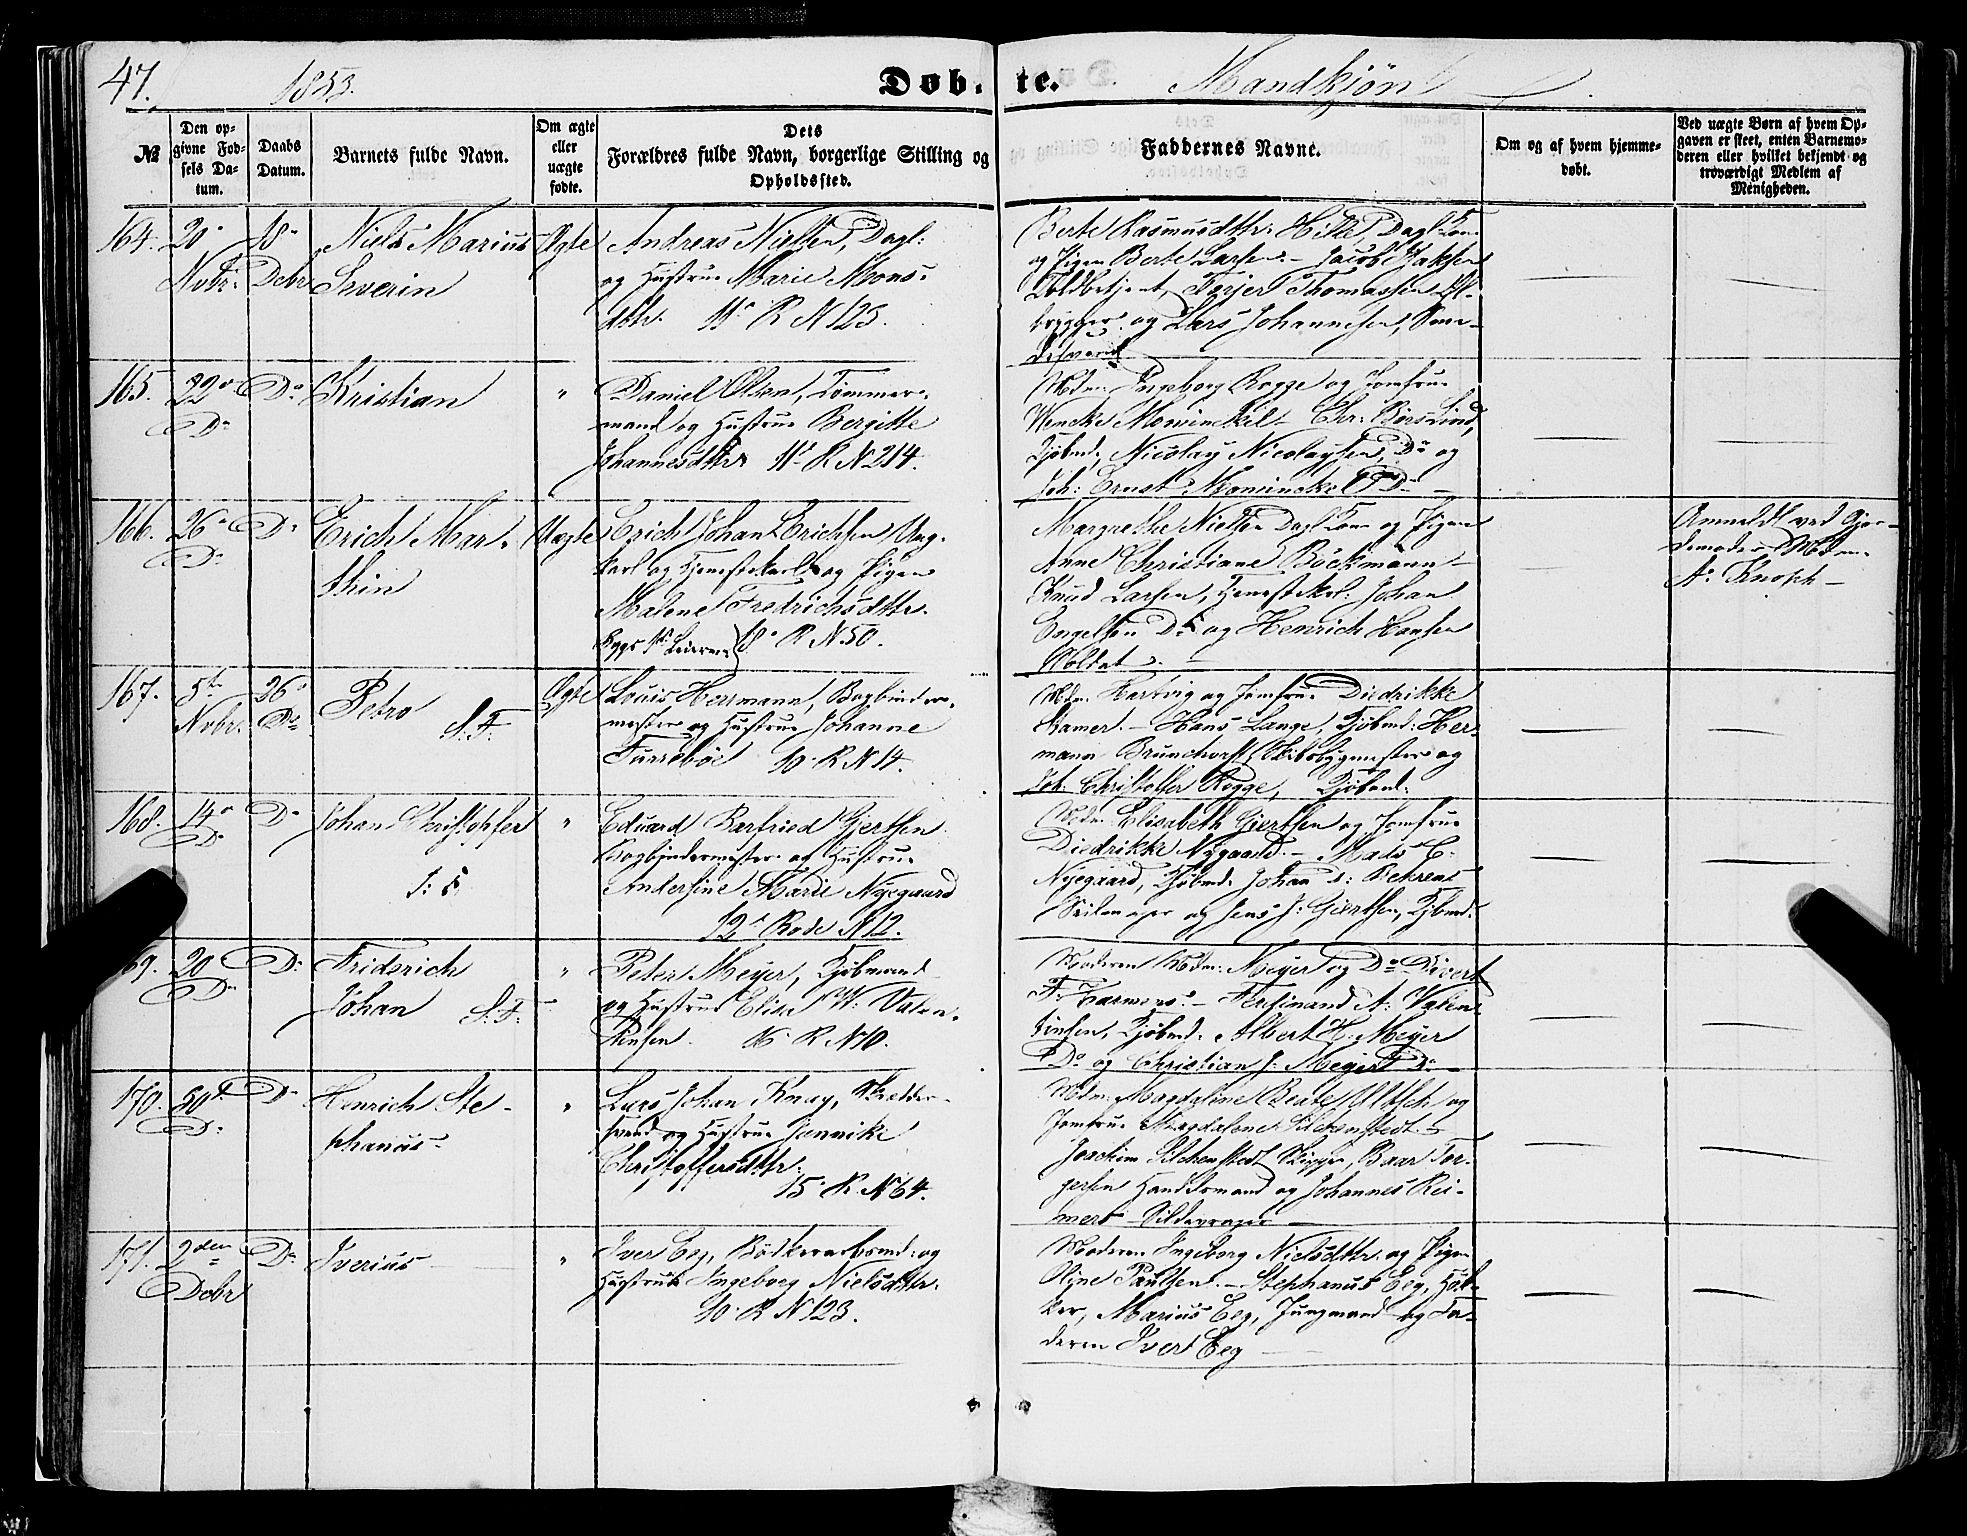 47.
1853.
Døbte.
Mandkjøn
№
Den opgivne Fødsels Datum.
Daabs Datum.
Barnets fulde Navn.
Om ægte eller uægte fødte.
Dets Forældres fulde Navn, borgerlige Stilling og Opholdssted.
Faddernes Navne.
Om og af hvem hjemmedøbt.
Ved uægte Børn af hvem Opgaven er skeet, enten Barnemoderen eller hvilket bekjendt og troværdigt Medlem af Menigheden.
164. 20 Novbr. 18 Debr
Niels Marius
Severin
Ægte
Andreas Nielsen, Dagl:
og Hustrue Marie Mons-
dttr. 11 R N 123.
Berte Rasmusdttr: Hille, Dagl. Kone
og Pigen Berte Larsen. – Jacob Jaksen
Toldbetjent, Torjer Thomassen
og Lars Johannesen,
165. 22 Do Do
Kristian
"
Daniel Olsen, Tømmer-
mand og Hustrue Bergitte
Johannesdttr 11 R N 214.
Mdm: Ingeborg Rogge og Jomfrue
Wencke Mowinckel – Chr: Børs Lind,
Kjøbmd, Nicolay Nicolaysen, Do og
Joh: Ernst Mowinckel Do –
166. 26 Do Do
Erich Mar-
thin
Uægte
Erich Johan Erichsen Ung-
karl og Tjenestekarl og Pigen
Malene Fredrichsdttr.
18 R N 50.
Margrethe Nielsen Dagl Kone og Pigen
Anne Christiane Böckmann –
Knud Larsen, Tjenestekrl: Johan
Engelsen Do og Henrich Hansen
Soldat. –
Anmeldt ved Gjor-
demoder Mdm.
A: Knoph –
167. 5te Novbr. 26 De
Petro
S: F:
Ægte
Louis Herrmann, Bogbinder-
mester og Hustrue Johanne
Furrebøe 10 R N 14.
Mdm: Hartvig og Jomfrue Diedrikke
Kamer. – Hans Lange, Kjøbmd: Her-
mann Brunchorst, Skibsbygmester og
Joh. Christoffer Rogge, Kjøbmd.
168. 14 D Do
Johan Christopfer
"
Eduard Barfried Gjertsen
Bogbindermester og Hustrue
Andersine Marie Nyegaard
12 Rode N 12.
Mdm: Elisabeth Giertsen og Jomfrue
Diedrikke Nygaard. – Mads C.
Nyegaard, Kjøbmd: Johan D: Behrens
og Jens J: Giertsen, Kjbmd:
69. 20 Do D:
Friderich
Johan
S: F:
"
Peter Meyer, Kjøbmand
og Hustrue Elisa W: Valen-
tinsen. 16 R N 70.
Moderen Mdm: Meyer og Do Sivert
F: Harmens. – Ferdinand A: Valen-
tinsen, Kjøbmd: Albert H. Meyer
Do og Christian J: Meyer Do –
170. 30te D: Do
Henrich Ste-
phanus
"
Lars Johan Knay,
svend og Hustrue Jannike
Christoffersdttr.
15 R. N 64.
Mdm: Magdalene Beate Ulltsch og
Jomfrue Magdalene Silchenstedt –
Joachim Silchenstedt Skipper, Baar Tor-
gersen Handelsmand og Johannes Rei-
mers – Sildevrager –
171. 2den Debr Do
Iverius
"
Iver Eeg, Bødkersvend: og
Hustrue Ingeborg Nielsdttr:
10 R N 123.
Moderen Ingeborg Nielsdttr. og Pigen
Oline Paulsen. – Stephanus Eeg, Hø-
ker, Marius Eeg, Jungmand og Fa-
deren Iver Eeg